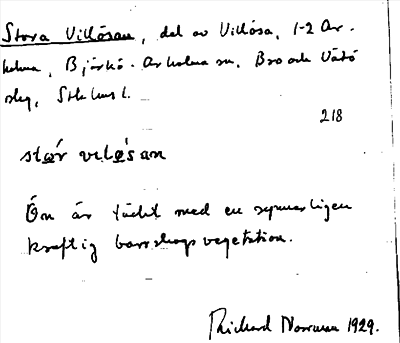 Stora Villösan, del av Villösa, 1-2 Ar-
holma, Björkö-Arholma sn, Bro och Vätö
slg, Sthlms l.
218
stor viløsan
Ön är täckt med en synnerligen
kraftig barrskogsvegetation.
Richard Norman 1929.